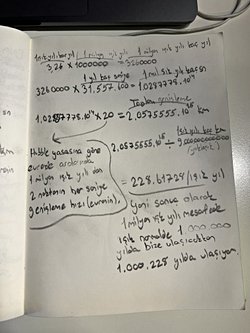 1 ışık yılı kaç yıl / 1 milyon ışık yılı / 1 milyon ışık yılı kaç yıl
3,26 x 1000000 = 3260000
1 yıl kaç saniye
3260000 x 31.557.600 = 1.0287775.10¹⁴
Toplam genişleme
1,0287775.10¹⁴ x 20 = 2.0575555.10¹⁵ km
2.0575555.10¹⁵ ÷ 9.000000000000
(yaklaşık)
Işık yılı kaç km
Hubble yasasına göre
evrende aralarında
1 milyon ışık yılı olan
2 noktanın her saniye
genişleme hızı (evrenin).
= 228.61728 (ışık yılı)
Yani sonuç olarak
1 milyon ışık yılı mesafedeki
ışık normalde 1.000.000
yılda bize ulaşacakken
1.000.228 yılda ulaşıyor.